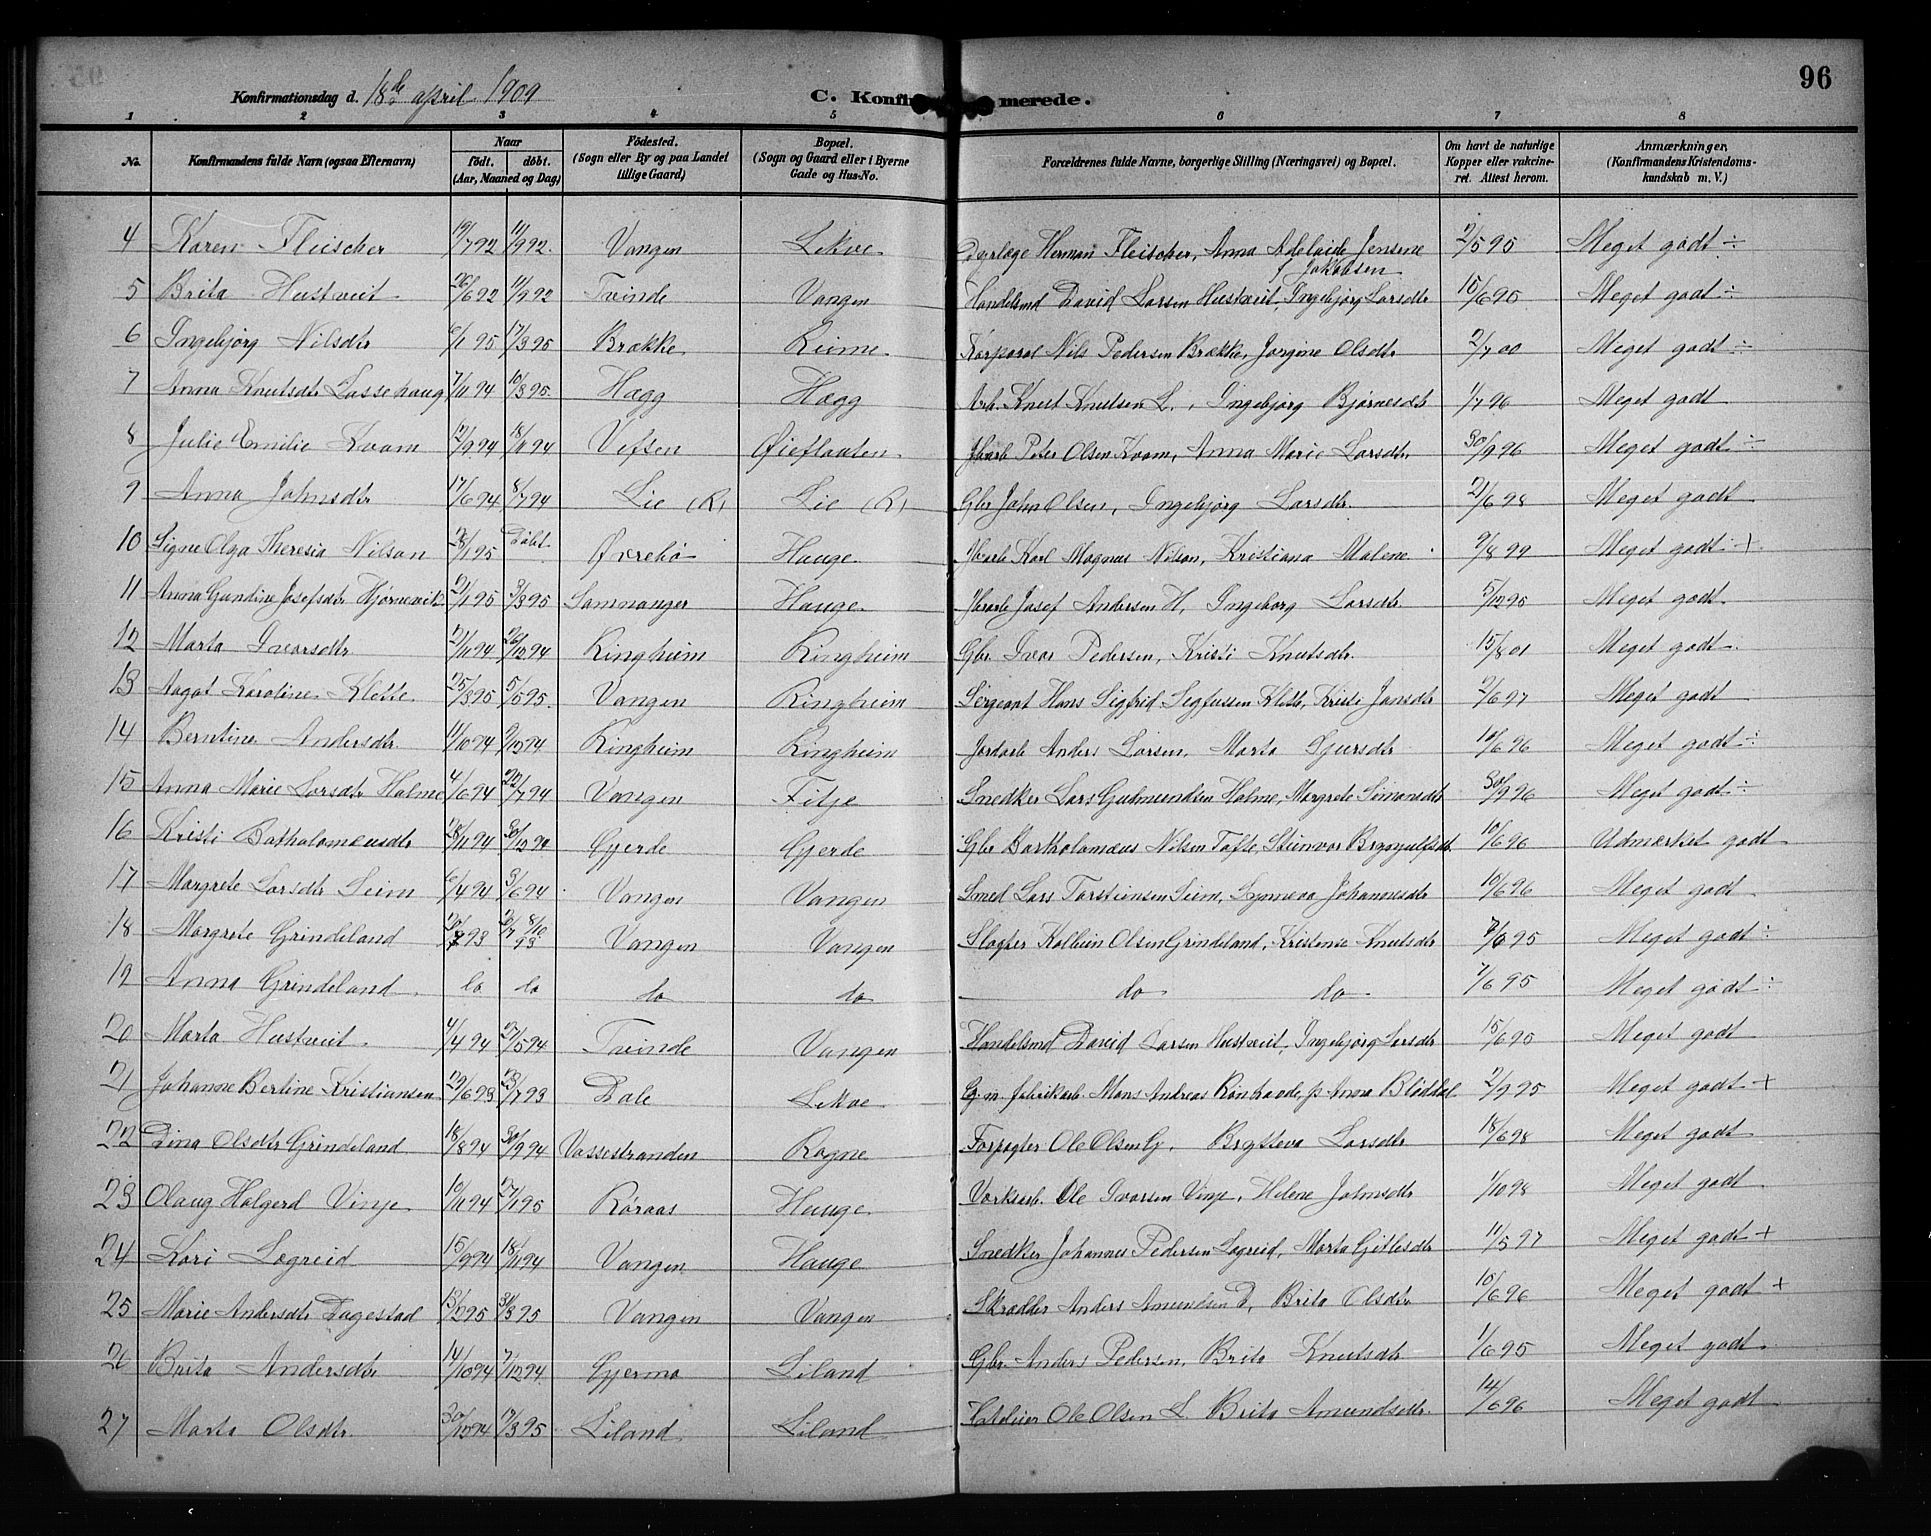 96
Konfirmationsdag d. 18de april 1909
C. Konfirmerede.
1 2 3 4 5 6 7 8
No. Konfirmandens fulde Navn (ogsaa Efternavn) Naar födt. döbt. (Aar, Maaned og Dag) Födested. (Sogn eller By og paa Landet tillige Gaard) Bopæl. (Sogn og Gaard eller i Byerne Gade og Hus-No. Forældrenes fulde Navne, borgerlige Stilling (Næringsvei) og Bopæl. Om havt de naturlige Kopper eller vakcineret. Attest herom. Anmærkninger, (Konfirmandens Kristendomskundskab m. V.)
4 Karen Fleischer 19/7 92 11/9 92. Vangen Lekve Dyrlæge Herman Fleischer, Anna Adelaide Jensine f Jakobsen 2/5 95 Meget godt ÷
5 Brita Hustveit 26/6 92 11/9 92 Tvinde Vangen Handelsmd David Larsen Hustveit, Ingebjørg Larsdtr 15/6 95 Meget godt ÷
6 Ingebjørg Nilsdtr 6/1 95 17/3 95 Brække Reime Korporal Nils Pedersen Brække, Jorgine Olsdtr 2/7 00 Meget godt ÷
7 Anna Knutsdtr Lassehaug 7/11 94 10/3 95. Hægg Hægg Arb. Knut Knutsen L., Ingebjørg Bjørnesdtr 1/7 96 Meget godt
8 Julie Emilie Kvam 12/9 94 18/11 94 Vefsen Øieflaaten Jbarb Peter Olsen Kvam, Anna Marie Larsdtr. 30/9 96 Meget godt ÷
9 Anna Johnsdtr 17/6 94 8/7 94 Lie (R) Lie (R) Gbr John Olsen, Ingebjørg Larsdtr. 21/6 98 Meget godt
10 Signe Olga Theresia Nilson 28/1 95 Døbt Øvrebø Hauge Jbarb Karl Magnus Nilson, Kristiana Malene 9/8 99 Meget godt +
11 Anna Gundine Josefsdtr Hjørnevik 21/1 95 3/3 95 Samnanger Hauge Jbarb Josef Andersen H, Ingeborg Larsdtr. 5/12 95 Meget godt
12 Marta Ivarsdtr 21/11 94 26/12 94 Ringheim Ringheim Gbr. Ivar Pedersen, Kristi Knutsdtr. 15/8 01 Meget godt
13 Aagot Karoline Klette 25/3 95 5/5 95. Vangen Ringheim Sergeant Hans Sigfrid Segfussen Klette, Kristi Jansdtr 2/6 97 Meget godt
14 Berntine Andersdtr 11/10 94 9/12 94 Ringheim Ringheim Jordarb Anders Larsen, Marta Sjursdtr 10/6 96 Meget godt ÷
15 Anna Marie Larsdtr Halme 4/6 94 22/7 94 Vangen Fitje Snedker Lars Gudmundsen Halme, Margrete Simonsdtr 30/9 96 Meget godt ÷
16 Kristi Batholomæusdtr 28/11 94 30/12 94 Gjerde Gjerde Gbr Bartholomæus Nilsen Tafte, Steinvor Brynjulfsdtr 10/6 96 Udmærket godt
17 Margrete Larsdtr Seim 6/4 94 3/6 94 Vangen Vangen Smed Lars Torsteinsen Seim, Synneva Johannesdtr 10/6 96 Meget godt
18 Margrete Grindeland 93 8/10 93 Vangen Vangen Slagter Kolbein Olsen Grindeland, Kristense Knutsdtr 7/6 95 Meget godt ÷
19 Anna Grindeland do do do do do do 7/6 95 Meget godt ÷
20 Marta Hustveit 4/4 94 27/5 94 Tvinde Vangen Handelsmd David Larsen Hustveit, Ingebjørg Larsdtr 15/6 95 Meget godt
21 Johanne Bertine Kristiansen 29/6 93 23/7 93 Dale Lekve Mons Andreas Anna 2/9 95 Meget godt +
22 Dina Olsdtr Grindeland 18/8 94 30/9 94 Vossestranden Rogne Forpagter Ole Olsen G, Brytteva Larsdtr 18/6 98 Meget godt
23 Olaug Halgerd Vinje 10/11 94 27/1 95 Røraas Hauge Værksarb. Ole Ivarsen Vinje, Helene Johnsdtr 1/10 98 Meget godt
24 Kari Lægreid 15/9 94 18/11 94 Vangen Hauge Snedker Johannes Pedersen Lægreid, Marta Gitlesdtr 11/5 97 Meget godt +
25 Marie Andersdtr Dagestad 13/2 95 31/3 95 Vangen Vangen Skrædder Anders Amundsen D, Brita Olsdtr 10/6 96 Meget godt +
26 Brita Andersdtr 14/10 94 7/12 94 Gjerme Liland Gbr. Anders Pedersen, Brita Knutsdtr 1/6 95 Meget godt
27 Marta Olsdtr. 30/12 94 17/3 95 Liland Liland Ole Olsen L Brita Amundsdtr. 14/6 96 Meget godt